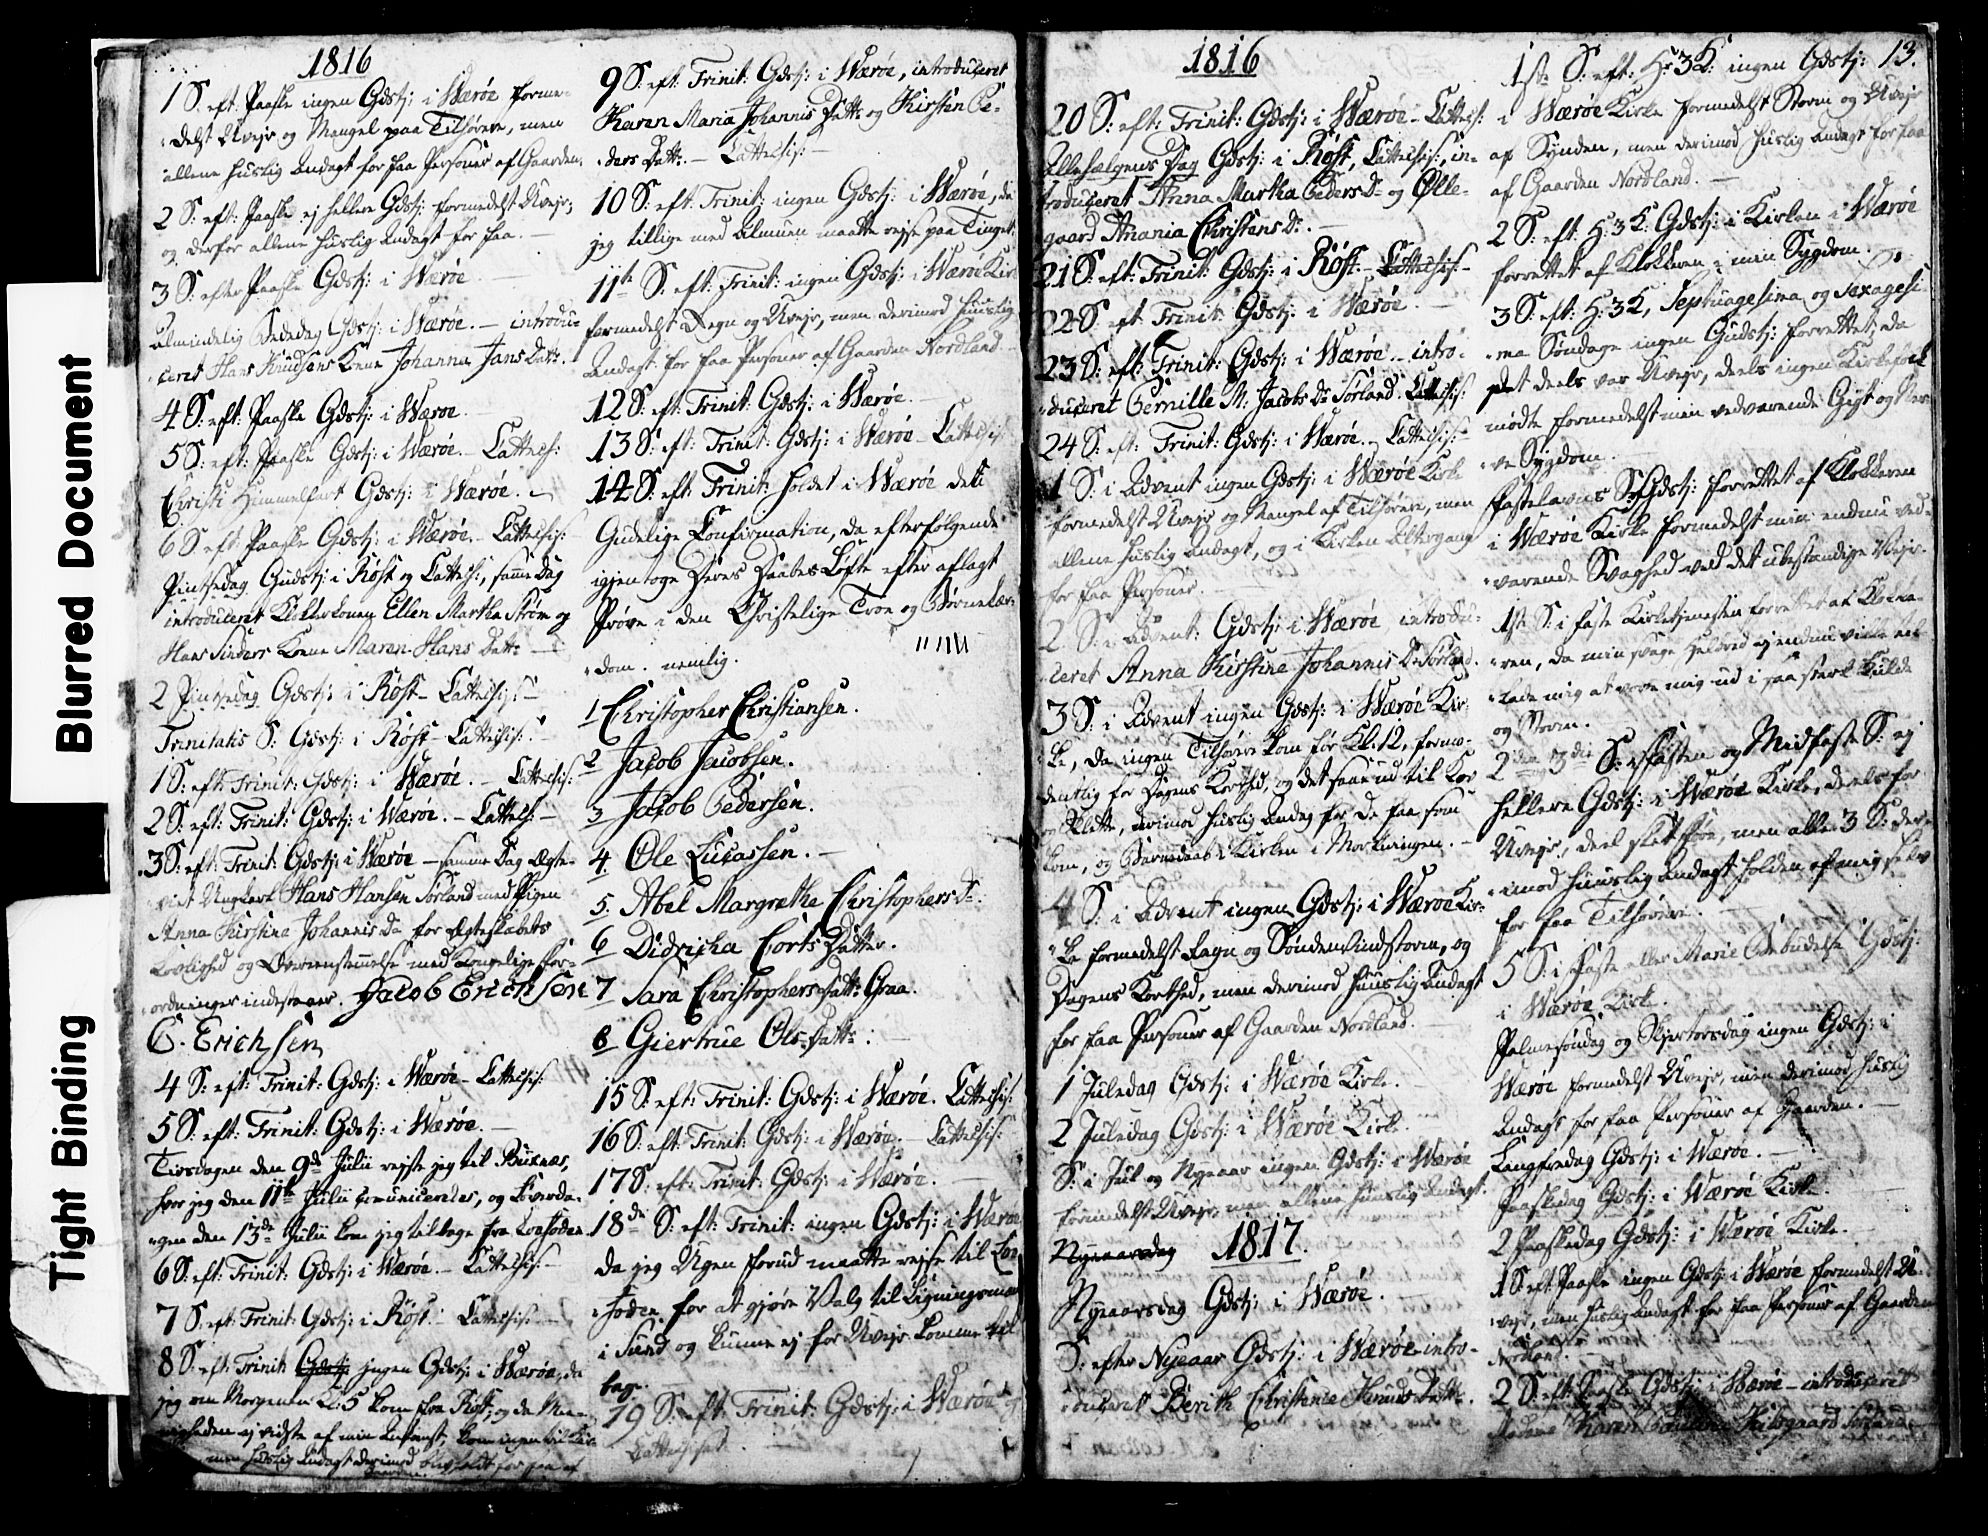 Blurred Document
Tight Binding
1816
1 S: eft: Paaske ingen Gdstj: i Wærøe forme-
delst Uvejr og Mangel paa Tilhørere, men
allene huslig Andagt for faa Personer af Gaarden.
2 S: eft: Paaske ej hellere Gdstj: formedelst Uvejr,
og derfor allene huslig Andagt for faa. —
3 S: efter Paaske Gdstj: i Wærøe
Almindelig Bededag Gdstj: i Wærøe. — introdu-
ceret Hans Knudsens Kone Johanna Jans Datt:
4 S: eft: Paaske Gdstj: i Wærøe.
5 S: eft: Paaske Gdstj: i Wærøe. Cattechs:
Christi Himmelfart Gdstj: i Wærøe. —
6 S: eft: Paaske Gdstj: i Wærøe. — Cattechis:
Pintsedag Gudstj: i Røst og Cattechs:, samme Dag
introduceret Klokkerkonen Ellen Martha Strøm og
Hans Sinders Kone Maren Hans Datt: —
2 Pintsedag Gdstj: i Røst — Cattechis: —
Trinitatis S: Gdstj: i Røst — Cattechis: —
1 S: eft: Trinit: Gdstj: i Wærøe. — Cattechis:
2 S: eft: Trinit: Gdstj: i Wærøe. — Cattechs: —
3 S: eft: Trinit: Gdstj: i Wærøe — samme Dag Ægte-
viet Ungkarl Hans Hansen Sørland med Pigen
Anna Kirstina Johannis Da for Ægteskabets
Lovlighed og Overensstemmelse med Kongelige For-
ordninger indestaaer. Jacob Erichsen
C. Erichsen
4 S: eft: Trinit: Gdstj: i Wærøe — Cattechis:
5 S: eft: Trinit: Gdstj: i Wærøe. —
Tirsdagen den 9de Julii rejste jeg til Buxnæs,
hvor jeg den 11te Julii comuniceredes, og Løverda-
gen den 13de Julii kom jeg tilbage fra Lofoden
6 S: eft: Trinit: Gdstj: i Wærøe. — Cattechis: —
7 S: eft: Trinit: Gdstj: i Røst. — Cattechis: —
8 S: eft: Trinit: Gdstj: ingen Gdstj: i Wærøe, da
jeg om Morgenen Kl: 5 kom fra Røst, og da Me-
nigheden ej vidste af min Ankomst, kom ingen til Kir-
men huslig Andagt derimod blev holdt for faa af
Gaarden.
9 S: eft: Trinit: Gdstj: i Wærøe, introduceret
Karen Maria Johannis Datt: og Kirsten Pe-
ders Datt: — Cattechis: —
10 S: eft: Trinit: ingen Gdstj: i Wærøe, da
jeg tillige med Almuen maatte rejse paa Tinget.
11te S: eft: Trinit: ingen Gdstj: i Wærøe Kir-
formedelst Regn og Uvejr, men derimod huuslig
Andagt for faa Personer af Gaarden Nordland
12 S: eft: Trinit: Gdstj: i Wærøe.
13 S: eft: Trinit: Gdstj: i Wærøe — Cattechis:
14 S: eft: Trinit: holdet i Wærøe det
Gudelige Confirmation, da efterfølgende
igjentoge Deres Daabes Løfte efter aflagt
Prøve i den Christelige Troe og Børnelær-
dom. nemlig.
1 Christopher Christiansen.
2 Jacob Jacobsen.
3 Jacob Pedersen.
4. Ole Lucassen. —
5. Abel Margrethe Christophers D:
6 Didricha Corts Datter.
7 Sara Christophers Datt: Graa.
8 Giertrue Ols Datt: —
15 S: eft: Trinit: Gdstj: i Wærøe. Cattechis:
16 S: eft: Trinit: Gdstj: i Wærøe. — Cattechis:
17 S: eft: Trinit: Gdstj: i Wærøe.
18de S: eft: Trinit: ingen Gdstj: i Wærøe
da jeg Ugen forud maatte rejse til Lo-
foden for at gjøre Valg til Ligningsmænd
i Sund og kunne ej for Uvejr komme til-
bage.
19 S: eft: Trinit: Gdstj: i Wærøe og
Cattechiset
1816
20 S: eft: Trinit: Gdstj: i Wærøe — Cattechs:
Allehælgens Dag Gdstj: i Røst, Cattechis:, in-
troduceret Anna Martha Peders D: og Ølle-
gaard Anania Christens D: —
21 S: eft: Trinit: Gdstj: i Røst. — Cattechis —
22 S: eft: Trinit: Gdstj: i Wærøe —
23 S: eft: Trinit: Gdstj: i Wærøe — intro-
duceret Pernille M: Jacobs D: Sørland. Cattechis:
24 S: eft: Trinit: Gdstj: i Wærøe. — Cattechis: —
1 S: i Advent ingen Gdstj: i Wærøe Kirke
formedelst Uvejr og Mangel af Tilhørere, men
allene huslig Andagt, og i Kirken Altergang
for faa Personer.
2 S: i Advent: Gdstj: i Wærøe introdu-
ceret Anna Kirstine Johannis D: Sørland.
3 S: i Advent ingen Gdstj: i Wærøe Kir-
ke, da ingen Tilhører kom før Kl. 12, formo-
dentlig for Dagens Korthed, og det saae ud til Kov
og Slette, derimod huslig Andag for de faa som
kom, og Barnedaab i Kirken i Mørkningen. —
4 S: i Advent ingen Gdstj: i Wærøe Kir-
ke formedelst Regn og Søndenvindstorm, og
Dagens Korthed, men derimod huuslig Andagt
for faa Personer af Gaarden Nordland. —
1 Juledag Gdstj: i Wærøe Kirke.
2 Juledag Gdstj: i Wærøe Kirke.
S: i Jul og Nyeaar ingen Gdstj: i Wærøe
formedelst Uvejr, men allene huuslig Andagt.
Nyeaarsdag 1817.
Nyeaarsdag Gdstj: i Wærøe. —
S: efter Nyeaar Gdstj: i Wærøe — intro-
duceret Berith Christence Knuds Datt:
13.
1ste S: eft: H: 3 K: ingen Gdstj:
i Wærøe Kirke formedelst Storm og Uvejr
af Synden, men derimod huslig Andagt for faa
af Gaarden Nordland. —
2 S: eft: H: 3 K. Gdstj: i Kirken i Wærøe
forrettet af Klokkeren i min Sygdom. —
3 S: eft: H: 3 K, Septuagesima og Sexagesi-
ma Søndage ingen Gudstj: forrettet, da
det deels var Uvejr, deels ingen Kirkefolk
mødte formedelst min vedvarende Gigt og Ner-
ve Sygdom.
Fastelavns S: Gdstj: forrettet af Klokkeren
i Wærøe Kirke formedelst min endnu ved-
varende Svaghed ved det ubestandige Vejr.
1ste S: i Faste Kirketjenesten forrettet af Klokke-
ren, da min svage Helbred ej endnu vilde til-
lade mig at vove mig ud i saa stærk Kulde
og Storm.
2den og 3die S: i Fasten og Midfaste S: ej
hellere Gdstj: i Wærøe Kirke, deels for
Uvejr, deel slet Føre, men alle 3 S: der-
imod huuslig Andagt holden af mig selv
for faa Tilhørere. —
5 S: i Faste eller Mariæ Bebudelse Gdstj:
i Wærøe Kirke.
Palmesøndag og Skjertorsdag ingen Gdstj: i
Wærøe formedelst Uvejr, men derimod huslig
Andagt for faa Personer af Gaarden. —
Langfredag Gdstj: i Wærøe. —
Paaskedag Gdstj: i Wærøe Kirke —
2 Paaskedag Gdstj: i Wærøe Kirke. —
1 S: eft: Paaske ingen Gdstj: i Wærøe formedelst U-
vejr, men huslig Andagt for faa Personer af Gaarden
Nordland. —
2 S: eft: Paaske Gdstj: i Wærøe — introduceret
Madame Karen